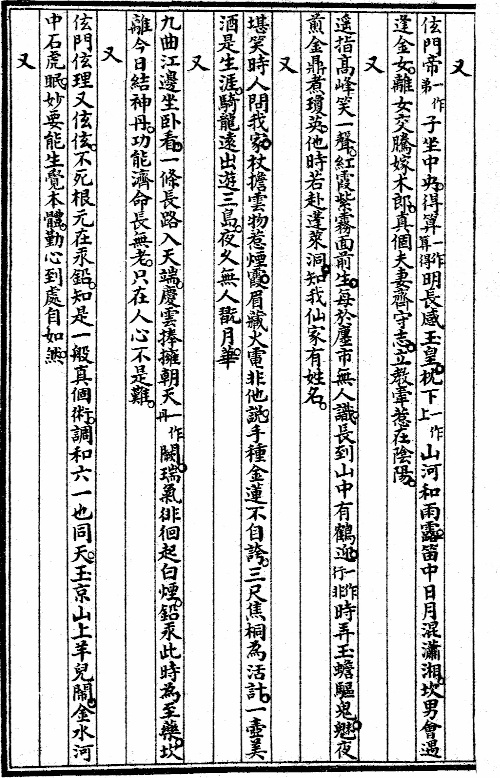 又
伭門帝一作弟子坐中央得算一作算得明長感玉皇枕下一作上山河和雨露笛中日月混瀟湘坎男會遇
逢金女離女交騰嫁木郎真個夫妻齊守志立教牽惹在陰陽
又
遙指高峰笑一聲紅霞紫霧面前生每於鄽市無人識長到山中有鶴迎一作行非時弄玉蟾驅鬼魅夜
煎金鼎煮瓊英他時若赴蓬萊洞知我仙家有姓名
又
堪笑時人問我家杖擔雲物惹煙霞眉藏火電非他說手種金蓮不自誇三尺焦桐為活計一壺美
酒是生涯騎龍遠出遊三島夜久無人翫月華
又
九曲江邊坐臥看一條長路入天端慶雲捧擁朝天一作丹闕瑞氣徘徊起白煙鉛汞此時為至藥坎
離今日結神丹功能濟命長無老只在人心不是難
又
伭門伭理又伭伭不死根元在汞鉛知是一般真個術調和六一也同天玉京山上羊兒鬧金水河
中石虎眠妙要能生覺本體勤心到處自如然
又